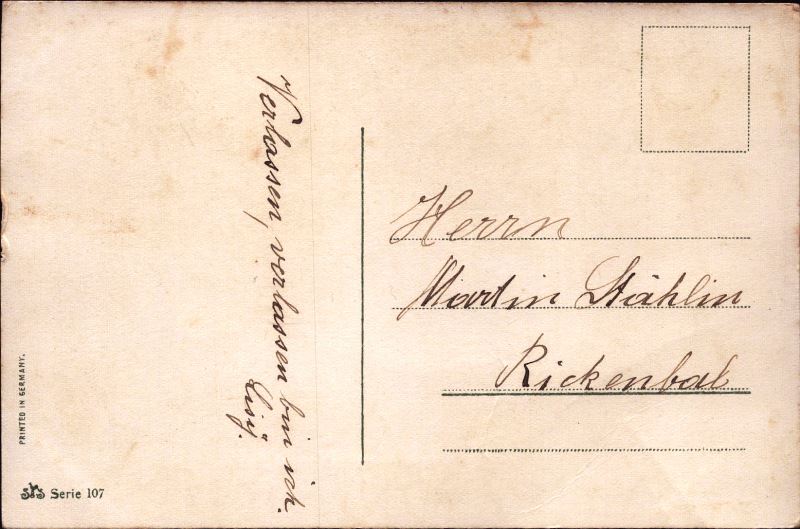 Verlassen, verlassen bin ich.
Lisÿ.
Herrn
Martin Stählin
Rickenbal
PRINTED IN GERMANY.
Serie 107